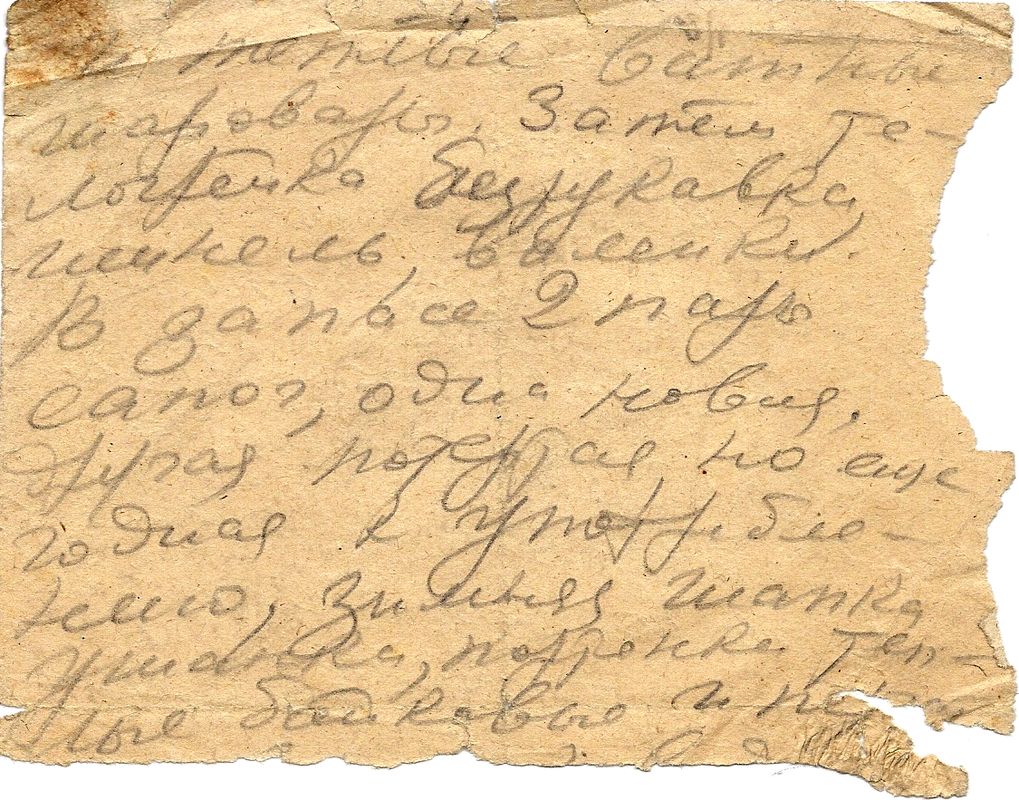 теплые ватные
шаровары. Затем те-
логрейка безрукавка,
шинель, валенки.
В запасе 2 пары
сапог, одна новая,
другая потертая но еще
годная к употребле-
нию, зимняя шапка
ушанка, портянки теп-
лые байковые и